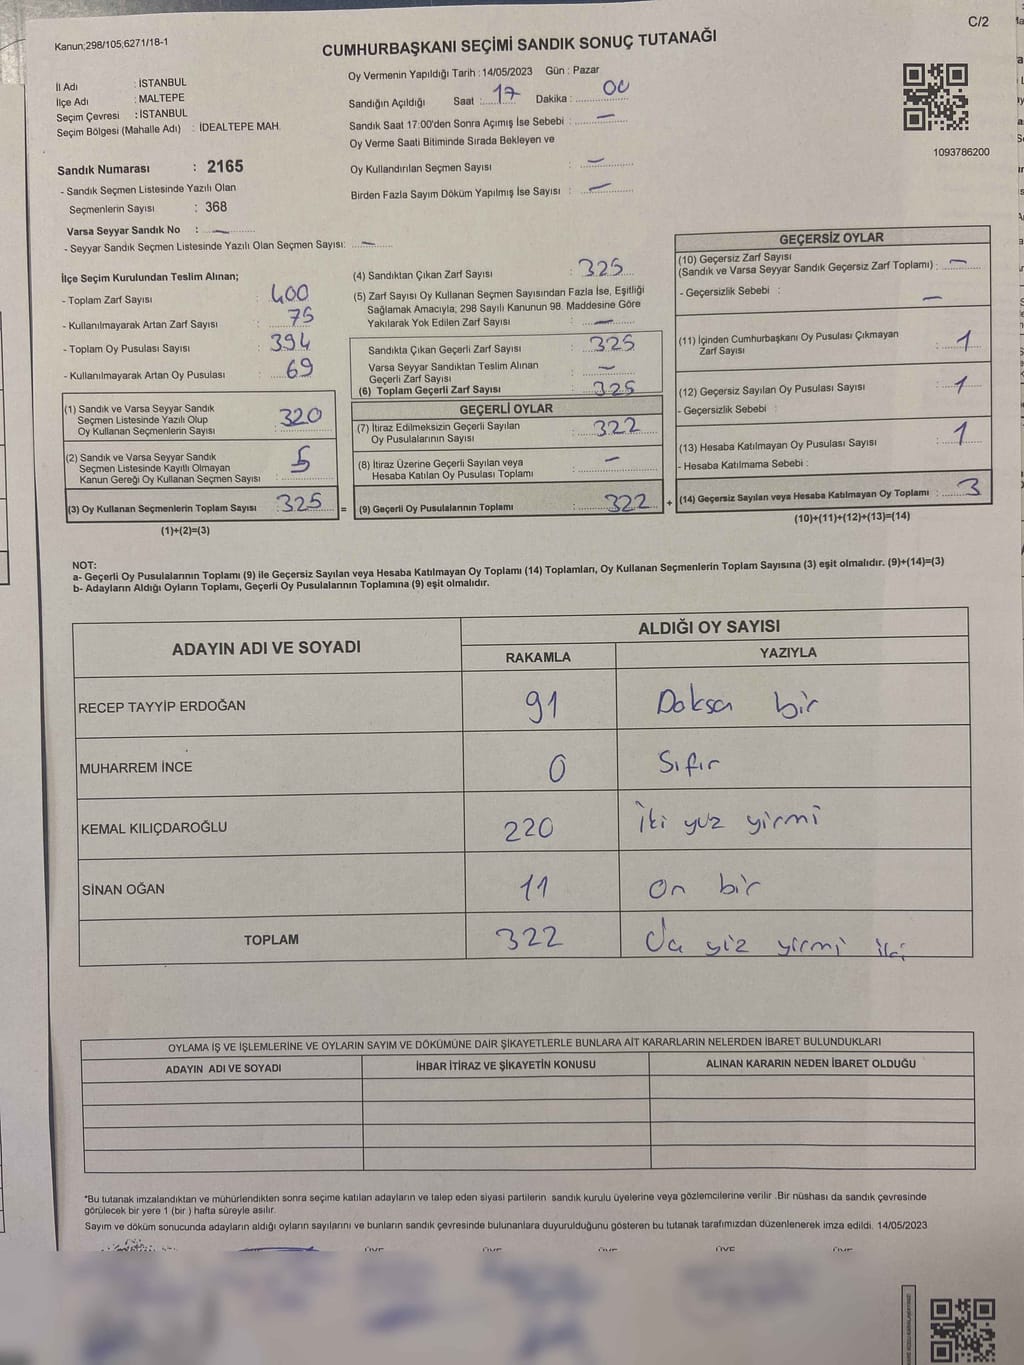 C/2
Kanun;298/105;6271/18-1
CUMHURBAŞKANI SEÇİMİ SANDIK SONUÇ TUTANAĞI
İl Adı : İSTANBUL
İlçe Adı : MALTEPE
Seçim Çevresi : İSTANBUL
Seçim Bölgesi (Mahalle Adı) : İDEALTEPE MAH.
Sandık Numarası : 2165
- Sandık Seçmen Listesinde Yazılı Olan
Seçmenlerin Sayısı : 368
Varsa Seyyar Sandık No : —
- Seyyar Sandık Seçmen Listesinde Yazılı Olan Seçmen Sayısı: —
Oy Vermenin Yapıldığı Tarih : 14/05/2023 Gün : Pazar
Sandığın Açıldığı Saat : 17 Dakika : 00
Sandık Saat 17:00'den Sonra Açımış İse Sebebi : —
Oy Verme Saati Bitiminde Sırada Bekleyen ve
Oy Kullandırılan Seçmen Sayısı : —
Birden Fazla Sayım Döküm Yapılmış İse Sayısı : —
1093786200
İlçe Seçim Kurulundan Teslim Alınan;
- Toplam Zarf Sayısı : 400
- Kullanılmayarak Artan Zarf Sayısı : 75
- Toplam Oy Pusulası Sayısı : 394
- Kullanılmayarak Artan Oy Pusulası : 69
(1) Sandık ve Varsa Seyyar Sandık
Seçmen Listesinde Yazılı Olup
Oy Kullanan Seçmenlerin Sayısı : 320
(2) Sandık ve Varsa Seyyar Sandık
Seçmen Listesinde Kayıtlı Olmayan
Kanun Gereği Oy Kullanan Seçmen Sayısı : 5
(3) Oy Kullanan Seçmenlerin Toplam Sayısı : 325
(1)+(2)=(3)
(4) Sandıktan Çıkan Zarf Sayısı : 325
(5) Zarf Sayısı Oy Kullanan Seçmen Sayısından Fazla İse, Eşitliği
Sağlamak Amacıyla, 298 Sayılı Kanunun 98. Maddesine Göre
Yakılarak Yok Edilen Zarf Sayısı : —
Sandıkta Çıkan Geçerli Zarf Sayısı : 325
Varsa Seyyar Sandıktan Teslim Alınan
Geçerli Zarf Sayısı : —
(6) Toplam Geçerli Zarf Sayısı : 325
GEÇERLİ OYLAR
(7) İtiraz Edilmeksizin Geçerli Sayılan
Oy Pusulalarının Sayısı : 322
(8) İtiraz Üzerine Geçerli Sayılan veya
Hesaba Katılan Oy Pusulası Toplamı : —
= (9) Geçerli Oy Pusulalarının Toplamı : 322
GEÇERSİZ OYLAR
(10) Geçersiz Zarf Sayısı
(Sandık ve Varsa Seyyar Sandık Geçersiz Zarf Toplamı) : —
- Geçersizlik Sebebi : —
(11) İçinden Cumhurbaşkanı Oy Pusulası Çıkmayan
Zarf Sayısı : 1
(12) Geçersiz Sayılan Oy Pusulası Sayısı : 1
- Geçersizlik Sebebi :
(13) Hesaba Katılmayan Oy Pusulası Sayısı : 1
- Hesaba Katılmama Sebebi :
+ (14) Geçersiz Sayılan veya Hesaba Katılmayan Oy Toplamı : 3
(10)+(11)+(12)+(13)=(14)
NOT:
a- Geçerli Oy Pusulalarının Toplamı (9) ile Geçersiz Sayılan veya Hesaba Katılmayan Oy Toplamı (14) Toplamları, Oy Kullanan Seçmenlerin Toplam Sayısına (3) eşit olmalıdır. (9)+(14)=(3)
b- Adayların Aldığı Oyların Toplamı, Geçerli Oy Pusulalarının Toplamına (9) eşit olmalıdır.
ADAYIN ADI VE SOYADI ALDIĞI OY SAYISI
RAKAMLA YAZIYLA
RECEP TAYYİP ERDOĞAN 91 Doksa bir
MUHARREM İNCE 0 Sıfır
KEMAL KILIÇDAROĞLU 220 iki yuz yirmi
SİNAN OĞAN 11 on bir
TOPLAM 322 yiz yirmi iki
OYLAMA İŞ VE İŞLEMLERİNE VE OYLARIN SAYIM VE DÖKÜMÜNE DAİR ŞİKAYETLERLE BUNLARA AİT KARARLARIN NELERDEN İBARET BULUNDUKLARI
ADAYIN ADI VE SOYADI İHBAR İTİRAZ VE ŞİKAYETİN KONUSU ALINAN KARARIN NEDEN İBARET OLDUĞU
*Bu tutanak imzalandıktan ve mühürlendikten sonra seçime katılan adayların ve talep eden siyasi partilerin sandık kurulu üyelerine veya gözlemcilerine verilir .Bir nüshası da sandık çevresinde
görülecek bir yere 1 (bir ) hafta süreyle asılır.
Sayım ve döküm sonucunda adayların aldığı oyların sayılarını ve bunların sandık çevresinde bulunanlara duyurulduğunu gösteren bu tutanak tarafımızdan düzenlenerek imza edildi. 14/05/2023